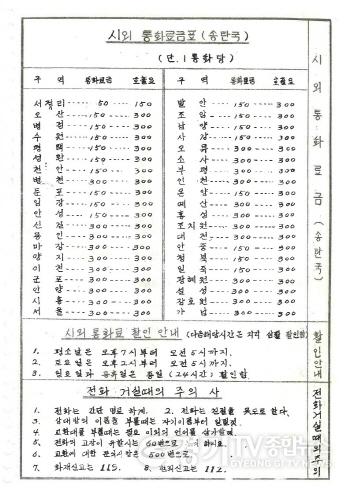 시외 통화료금표 (송탄국)
(단. 1통화당)
구 역 통화료금 호출료 구 역 통화료금 호출료
서정리 50 150 발 안 150 300
오 산 150 300 조 암 150 300
병 점 150 300 남 양 150 300
수 원 150 300 사 강 150 300
평 택 150 300 오 류 300 300
성 환 150 300 소 사 300 300
천 안 150 300 부 평 300 300
병 천 300 300 인 천 300 300
둔 포 150 300 온 양 150 300
입 장 150 300 예 산 300 300
안 성 150 300 홍 성 300 300
신 갈 300 300 조치원 300 300
용 인 300 300 대 전 300 300
마 장 300 300 안 중 150 300
양 지 300 300 청 북 150 300
이 천 300 300 일 죽 300 300
군 포 300 300 장혜원 300 300
안 양 300 300 설 성 300 300
시 흥 300 300 장호원 300 300
서 울 300 300 가 남 300 300
시외 통화료 할인 안내 (다음해당시간은 각각 삼할 할인함)
1. 평소일은 오후7시부터 오전5시까지.
2. 토요일은 오후2시부터 오전5시까지.
3. 일요일과 공휴일은 종일 (24시간) 할인함
전화 거실때의 주의 사
1. 전화는 간단 명료 하게. 2. 전화는 친절을 위도로 한다.
3. 상대방의 이름을 부를때는 자기이름부터 말할것.
4. 교환대를 부를때는 필요 이외의 언어를 삼가할것.
5. 전화의 고장이 유할시는 60번으로 하시요.
6. 교환에 대한 문의사항은 500번으로
7. 화재신고는 119. 8. 범죄신고는 112.
시외통화료금 (송탄국)
할인안내
전화거실때의주의
GTV종합뉴스
GYEONGIN TV NEWS